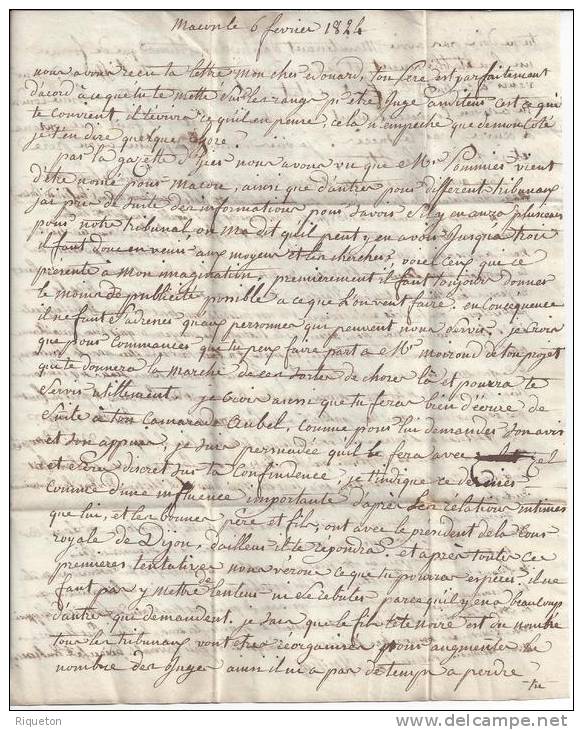 Macon le 6 fevrier 1824
nous avons recu ta lettre mon cher edouard, ton pere est parfaitement
d'acord a ce que tu te mette sur les rangs pr etre Juge auditeur c'est ce qui
te convient il t'ecrira ce qu'il en pense, cela n'empeche que de mon coté
je t'en dise quelque chose
par la gazette d'hier nous avons vu que Mr Pommier vient
d'etre nomé pour Macon, ainsi que d'autre pour different tribunaux
j'ai prie de suite des informations pour savoir s'il y en aura plusieurs
pour notre tribunal, on m'a dit qu'il peut y en avoir Jusqu'a trois
il faut donc en venir aux moyens et les chercher, voici ceux que ce
presente a mon imagination, premierement il faut toujours donner
le moins de publicité possible a ce que l'on veut faire, en consequence
il ne faut s'adresser qu'aux personnes qui peuvent nous servir, je crois
que pour commancer que tu peux faire part a Mr de ton projet
qui te donnera la marche de ces sortes de choses là et pourra te
servir utillement, je crois aussi que tu feras bien d'écrire de
suite à ton Camarade Aubel, comme pour lui demander son avis
et son appui, je suis persuadée qu'il le fera avec zel
et sera discret sur ta Confindence, je t'indique ce dernier
comme d'une influence importante d'après les rélations intimes
que lui, et les bonnes père et fils, ont avec le president de la Cour
royale de Dijon, d'ailleurs il te répondra, et après toute ces
premieres tentatives nous verons ce que tu pourras espérer, il ne
faut pas y mettre de lenteur parcequ'il y en a beaucoup
d'autre qui demandent, je sais que le fils tete noire est du nombre
tous les tribunaux vont etre réorganiser pour augmenter le
nombre des Juges ainsi il n'y a pas de temps a perdre
tu
Riqueton
www.delcampe.net